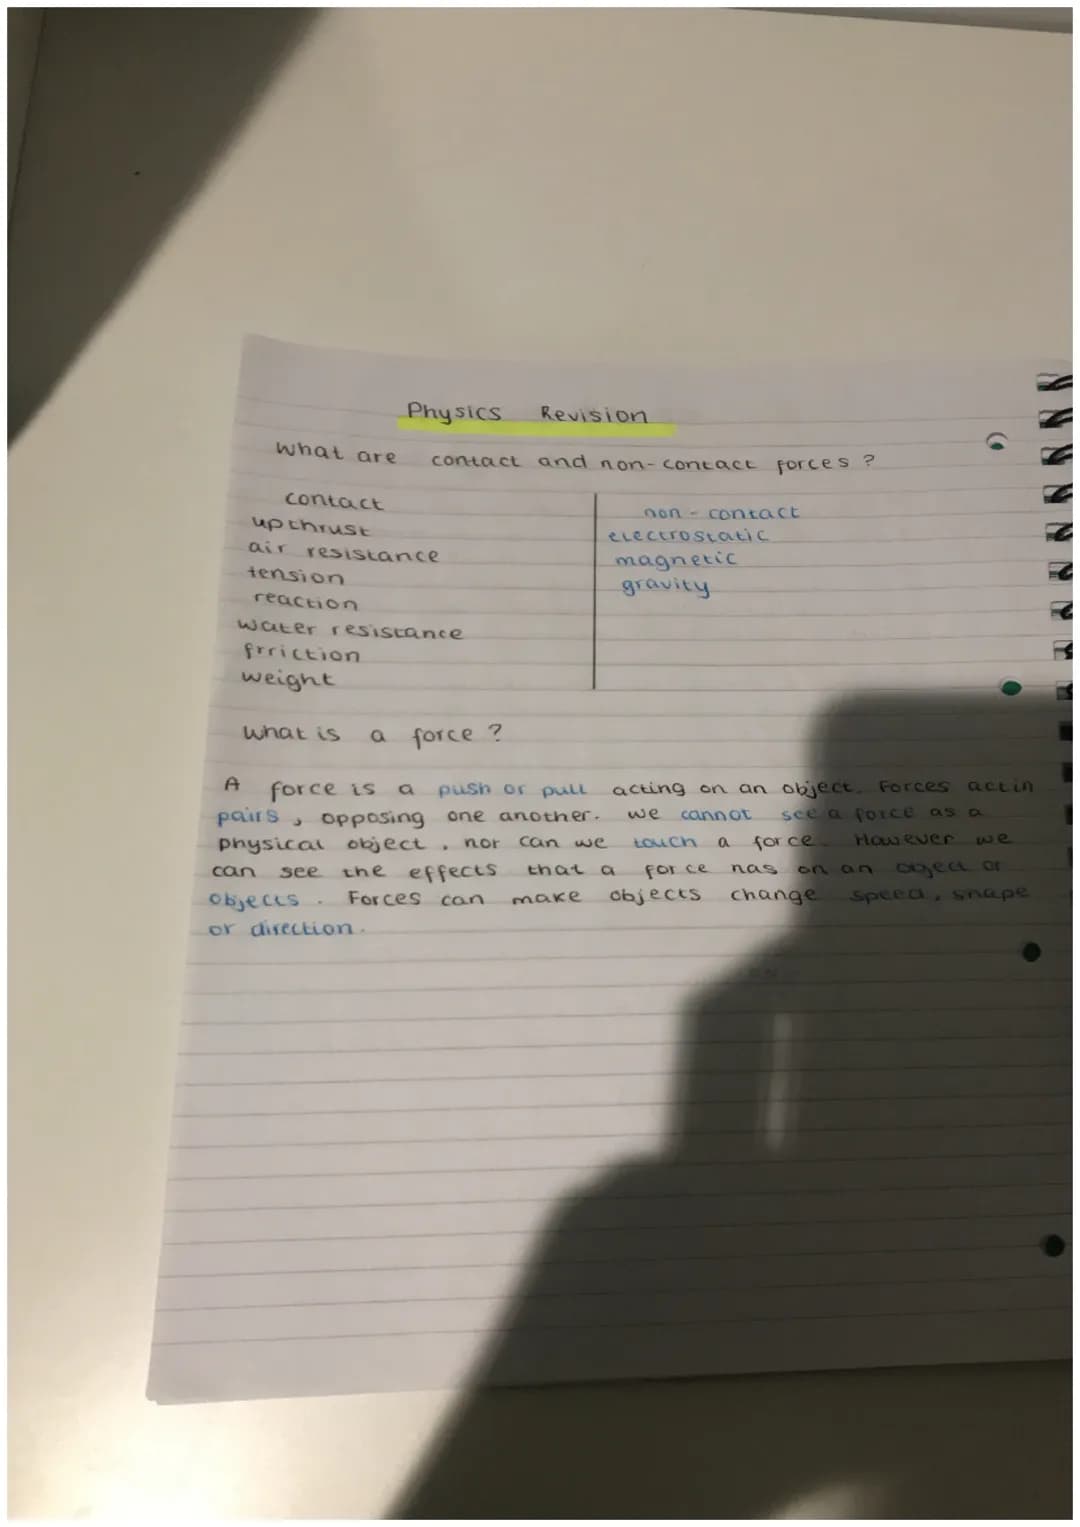 Physics Revision
What are contact and non-contact forces?
contact
upthrust
air resistance
tension
reaction
water resistance
frriction
weight
non-contact
electrostatic
magnetic
gravity
What is a force?
A force is a push or pull acting on an object. Forces act in
pairs, opposing one another. we cannot see a force as a
physical object, nor can we touch a force. However we
can see the effects that a force has on an object or
objects. Forces can make objects change speed, shape
or direction.